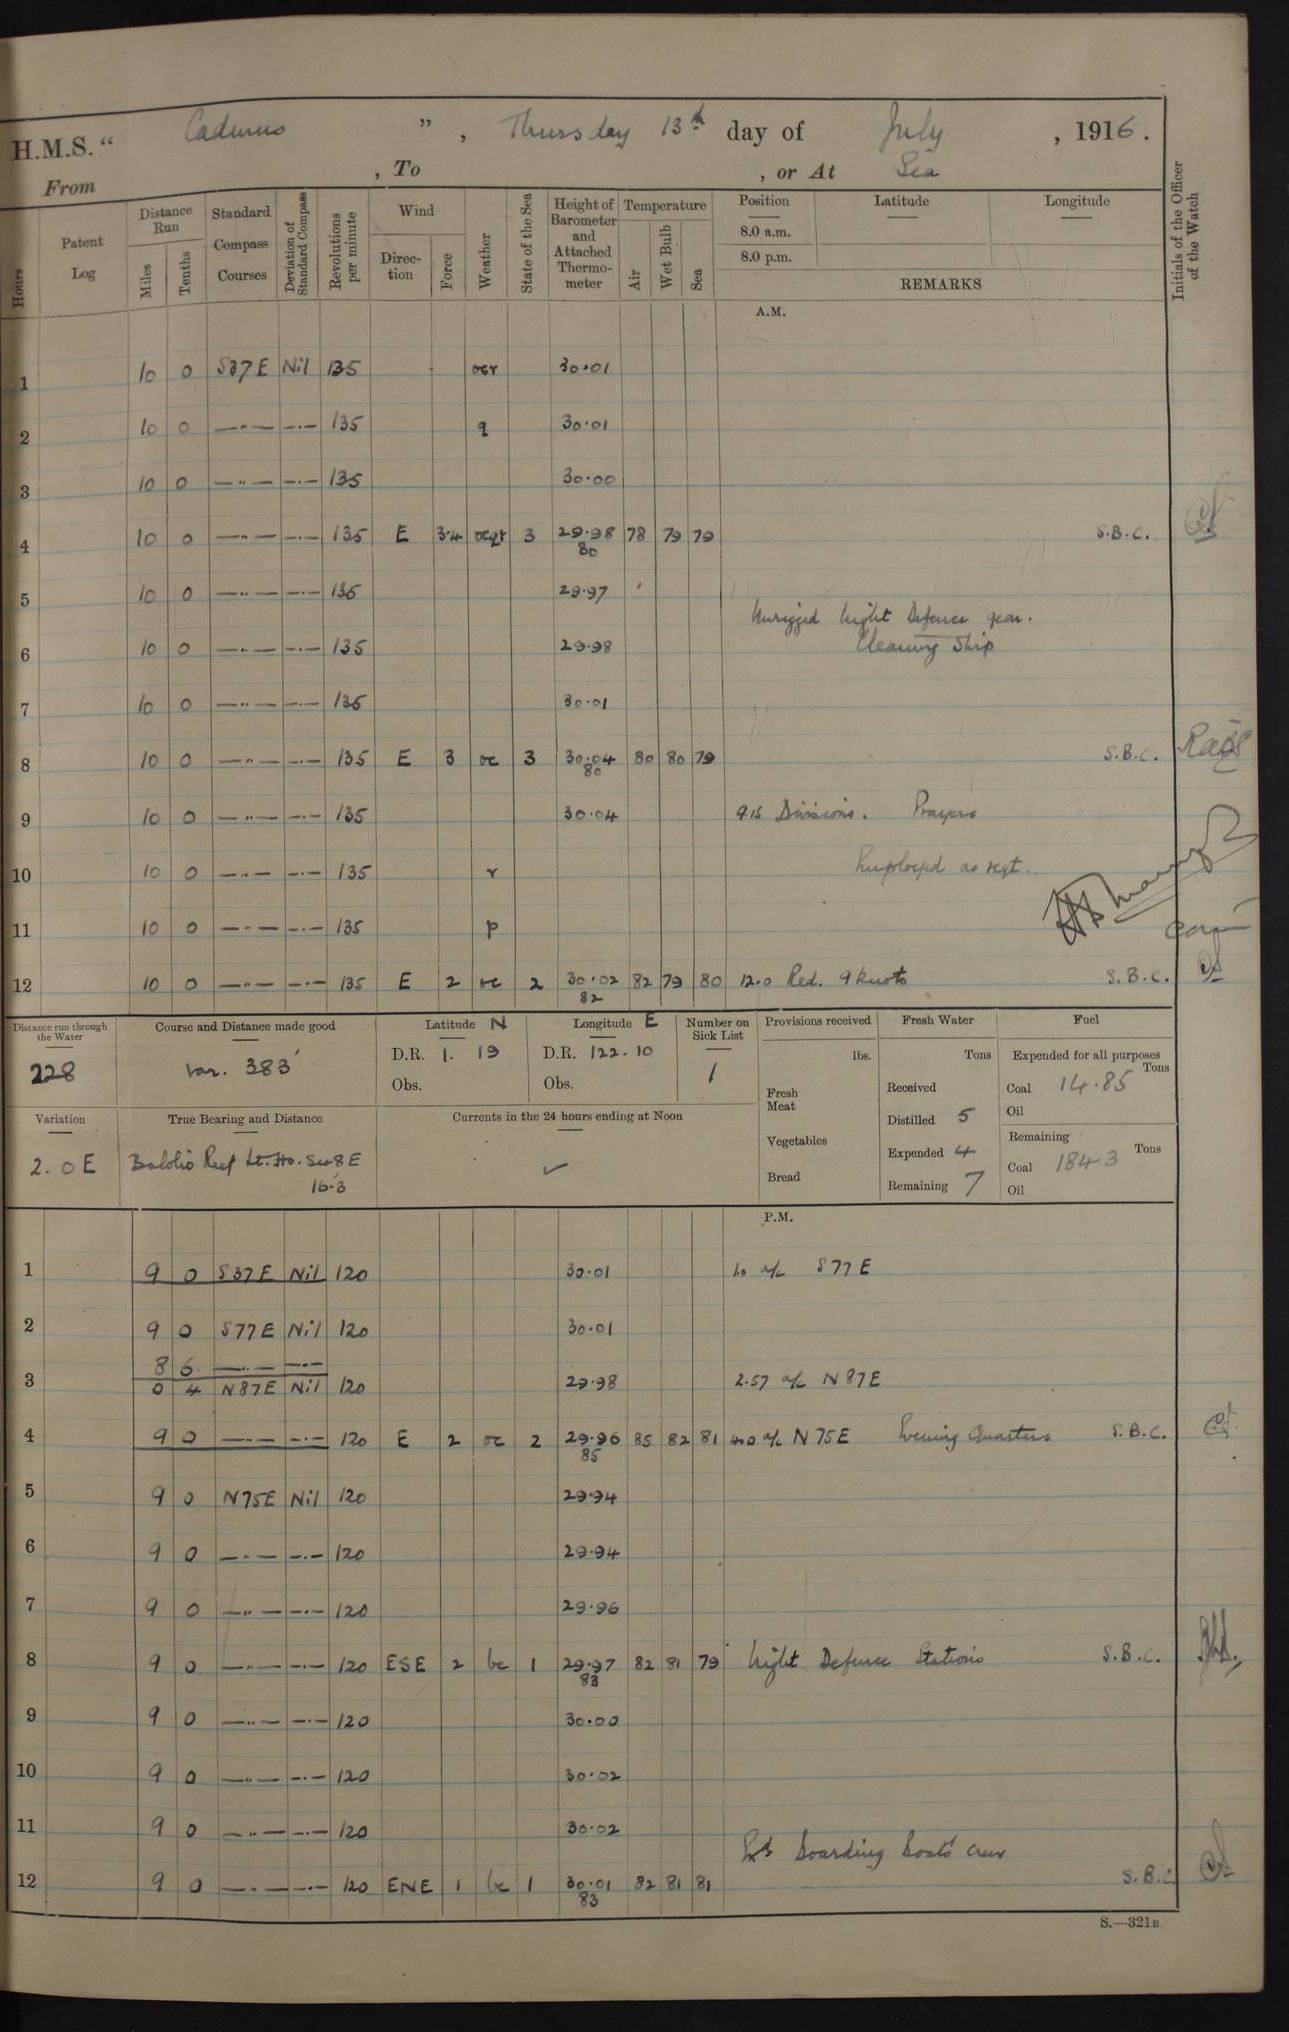 H.M.S. " Cadmus ", Thursday 13th day of July, 1916.
From , To , or At Sea
Hours
Patent Log
Distance Run
Miles
Tenths
Standard Compass Courses
Deviation of Standard Compass
Revolutions per minute
Wind
Direction
Force
Weather
State of the Sea
Height of Barometer and Attached Thermometer
Temperature
Air
Wet Bulb
Sea
Position
8.0 a.m.
8.0 p.m.
Latitude
Longitude
REMARKS
Initials of the Officer of the Watch
A.M.
1 10 0 S37E Nil 135 ocr 30.01
2 10 0 —"— —·— 135 q 30.01
3 10 0 —"— —·— 135 30.00
4 10 0 —"— —·— 135 E 3.4 ocqr 3 29.98 78 79 79 S.B.C.
80
5 10 0 —"— —·— 135 29.97
Unrigged Night Defence gear.
6 10 0 —"— —·— 135 29.98 Cleaning Ship
7 10 0 —"— —·— 135 30.01
8 10 0 —"— —·— 135 E 3 oc 3 30.04 80 80 79 S.B.C.
80
9 10 0 —"— —·— 135 30.04 9.15 Divisions. Prayers
10 10 0 —"— —·— 135 r Employed as reqt.
11 10 0 —"— —·— 135 p
12 10 0 —"— —·— 135 E 2 oc 2 30.02 82 79 80 12.0 Red. 9 knots S.B.C.
82
Distance run through the Water
228
Course and Distance made good
Var. 383'
Latitude N
D.R. 1. 19
Obs.
Longitude E
D.R. 122.10
Obs.
Number on Sick List
1
Provisions received
lbs.
Fresh Meat
Vegetables
Bread
Fresh Water
Tons
Received
Distilled 5
Expended 4
Remaining 7
Fuel
Expended for all purposes
Tons
Coal 14.85
Oil
Remaining
Tons
Coal 1843
Oil
Variation
2.0E
True Bearing and Distance
Reef Lt. Ho. S48E
16.3
Currents in the 24 hours ending at Noon
✓
P.M.
1 9 0 S37E Nil 120 30.01 1.0 a/c S77E
2 9 0 S77E Nil 120 30.01
8 6 —"— —·—
3 0 4 N87E Nil 120 29.98 2.57 a/c N87E
4 9 0 —"— —·— 120 E 2 oc 2 29.96 85 82 81 4.0 a/c N75E Evening Quarters S.B.C.
85
5 9 0 N75E Nil 120 29.94
6 9 0 —"— —·— 120 29.94
7 9 0 —"— —·— 120 29.96
8 9 0 —"— —·— 120 ESE 2 bc 1 29.97 82 81 79 Night Defence Stations S.B.C.
83
9 9 0 —"— —·— 120 30.00
10 9 0 —"— —·— 120 30.02
11 9 0 —"— —·— 120 30.02
Boarding Boats' Crew
12 9 0 —"— —·— 120 ENE 1 bc 1 30.01 82 81 81 S.B.C.
83
S.—321B.